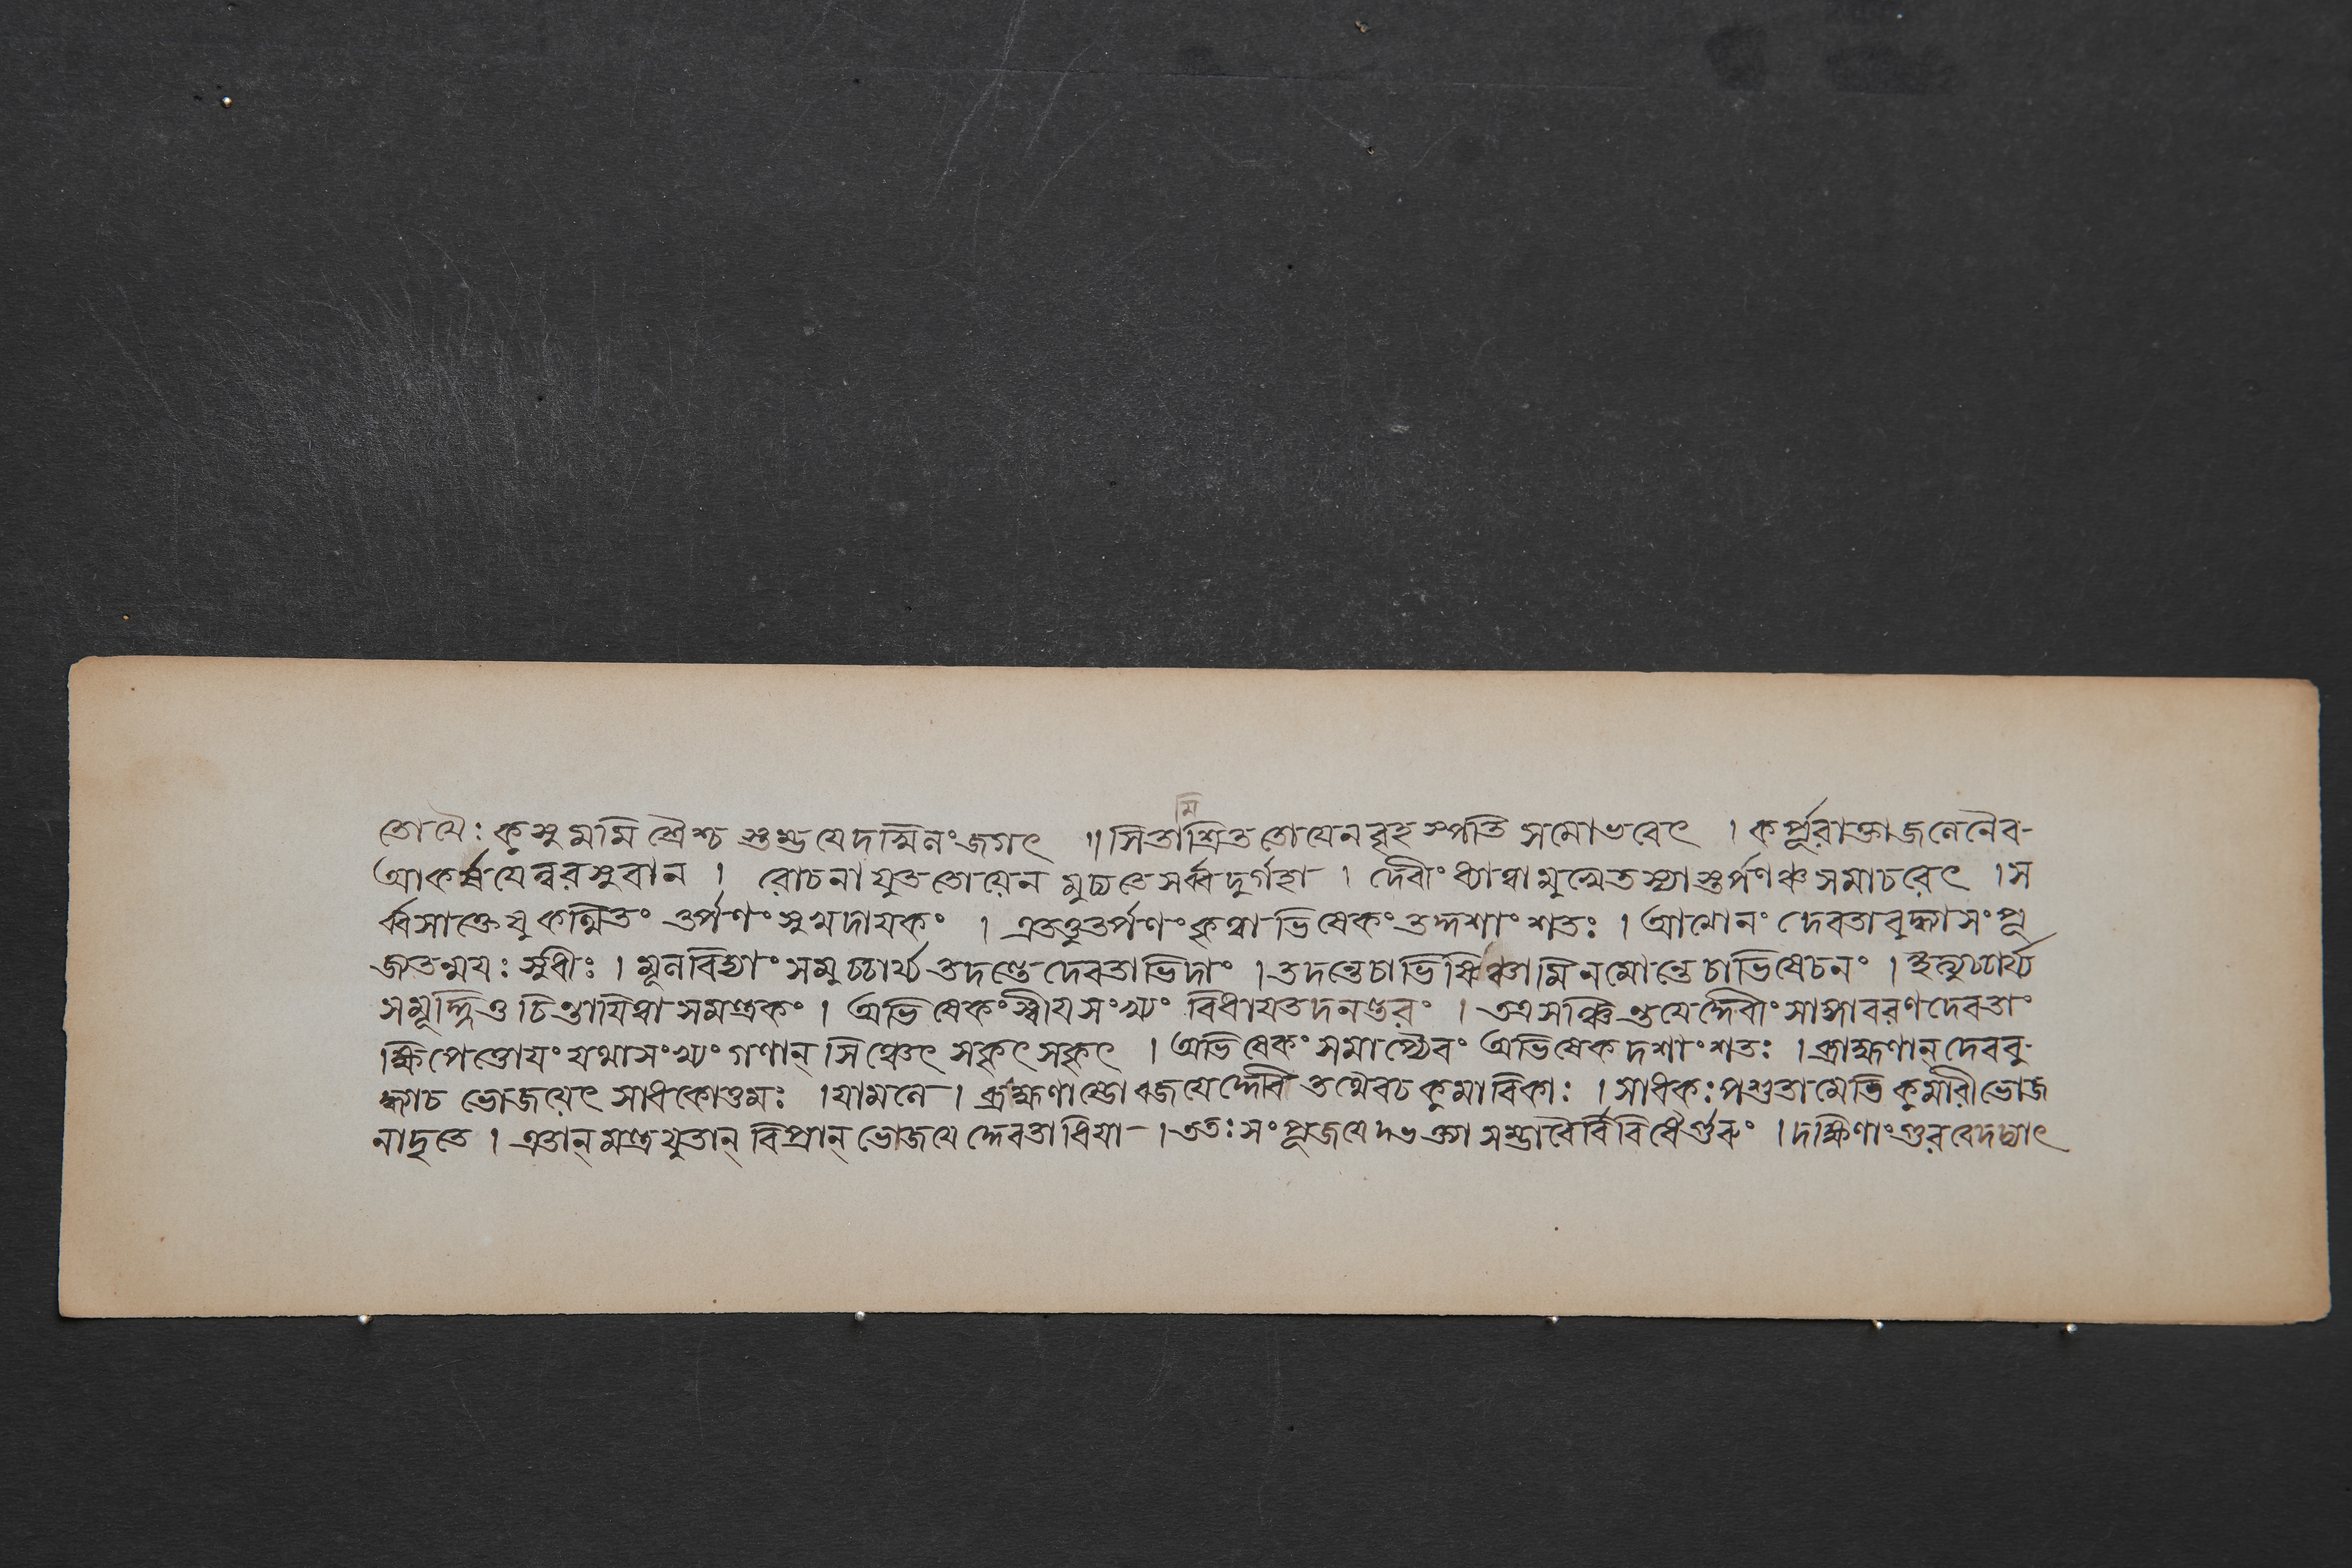 তোযৈঃ কুসুমমিশ্রৈশ্চ স্তম্ভযেদখিলংজগৎ ॥ সিতামিশ্রিততোযেনবৃহস্পতিসমোভবেৎ । কর্পূরাক্তাজলেনৈব-
আকর্ষযেন্নরসুরান । রোচনাযুততোযেন মুচ্যতেসর্ব্বদুর্গহা । দেবীংধ্যাত্বামুখেতস্যাস্তর্পণঞ্চসমাচরেৎ । স
র্ব্বসাক্তেষুকথিতং তর্পণংসুখদাযকং । এতত্তুতর্পণংকৃত্বাভিষেকংতদ্দশাংশতঃ । আত্মানং দেবতাবুদ্ধ্যাসংপূ
জ্যতন্ময়ঃ সুধীঃ । মূলবিদ্যাংসমুচ্চার্য্যতদন্তেদেবতাভিদাং । তদন্তেচাভিষিঞ্চামিনমোন্তেচাভিষেচনং । ইত্যুচ্চার্য্য
সমূর্দ্ধ্নিও চিন্তাযিত্বাসমন্ত্রকং । অভিষেকংস্বীযসংখ্যং বিধাযতদনন্তরং । তত্রসঞ্চিন্তযেদ্দেবীংসাঙ্গাবরণদেবতাং
ক্ষিপেত্তোযংযথাসংখ্যংগণান্ সিঞ্চেৎ সকৃৎসকৃৎ । অভিষেকংসমাপ্যৈবং অভিষেকদশাংশতঃ । ব্রাহ্মণান্দেববু-
দ্ধ্যাচ ভোজযেৎ সাধকোত্তমঃ । যামলে । ব্রাহ্মণান্ভোজযেদ্দেবি তথৈবচকুমারিকাঃ । সাধকঃপশুতামেতিকুমারীভোজ
নাদৃতে । এতান্মন্ত্রযুতান্ বিপ্রান্ ভোজযেদ্দেবতাধিযা- । ততঃসংপূজযেদভক্ত্যাসম্ভারৈর্বিবিধৈর্গুরুং । দক্ষিণাংগুরবেদদ্যাৎ